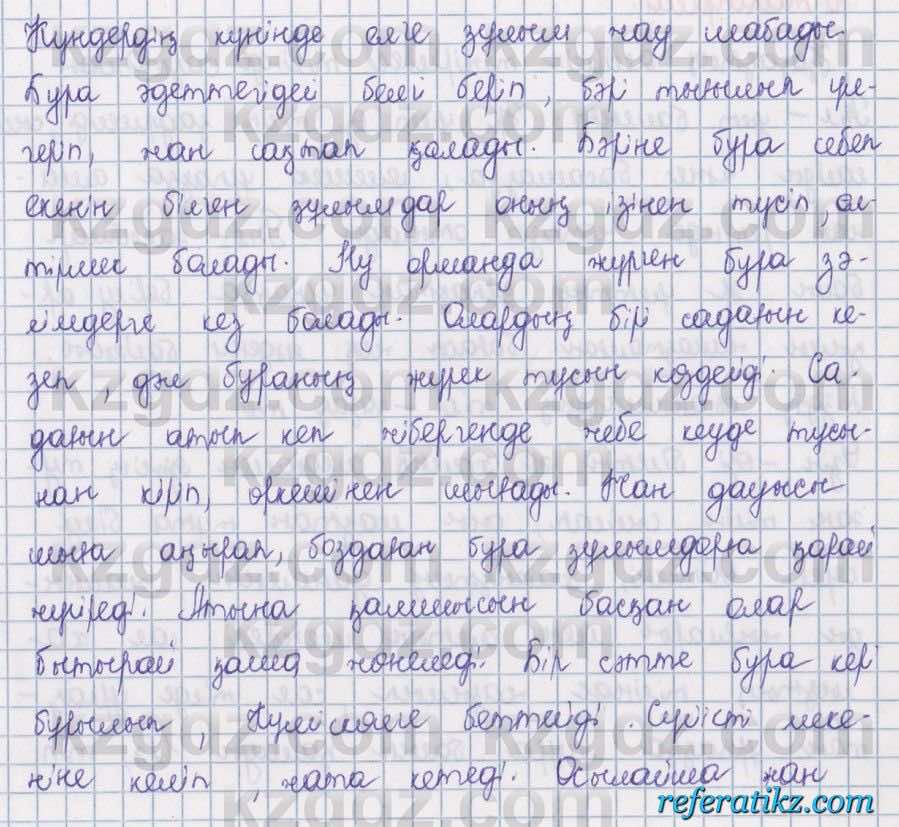 Күндердің күнінде елге зұлым жау шабады.
Бура әдеттегідей белгі беріп, бәрі тығылып үл-
геріп, жан сақтап қалады. Бәріне бура себеп
екенін білген зұлымдар оның ізінен түсіп, өл-
тірмек болады. Ну орманда жүрген бура зә-
лімдерге кез болады. Олардың бірі садағын ке-
зеп, дәл бураның жүрек тұсын көздейді. Са-
дағын атып кеп жібергенде жебе кеуде тұсы-
нан кіріп, өркешінен шығады. Жан дауысы
шыға аңырап, боздаған бура зұлымдарға қарай
жүгіреді. Атына қамшысын басқан олар
бытырай қаша жөнеледі. Бір сәтте бура кері
бұрылып, Күлшөлге беттейді. Сүйікті меке-
ніне келіп, жата кетеді. Осылайша жан
kzgdz.com
referatikz.com